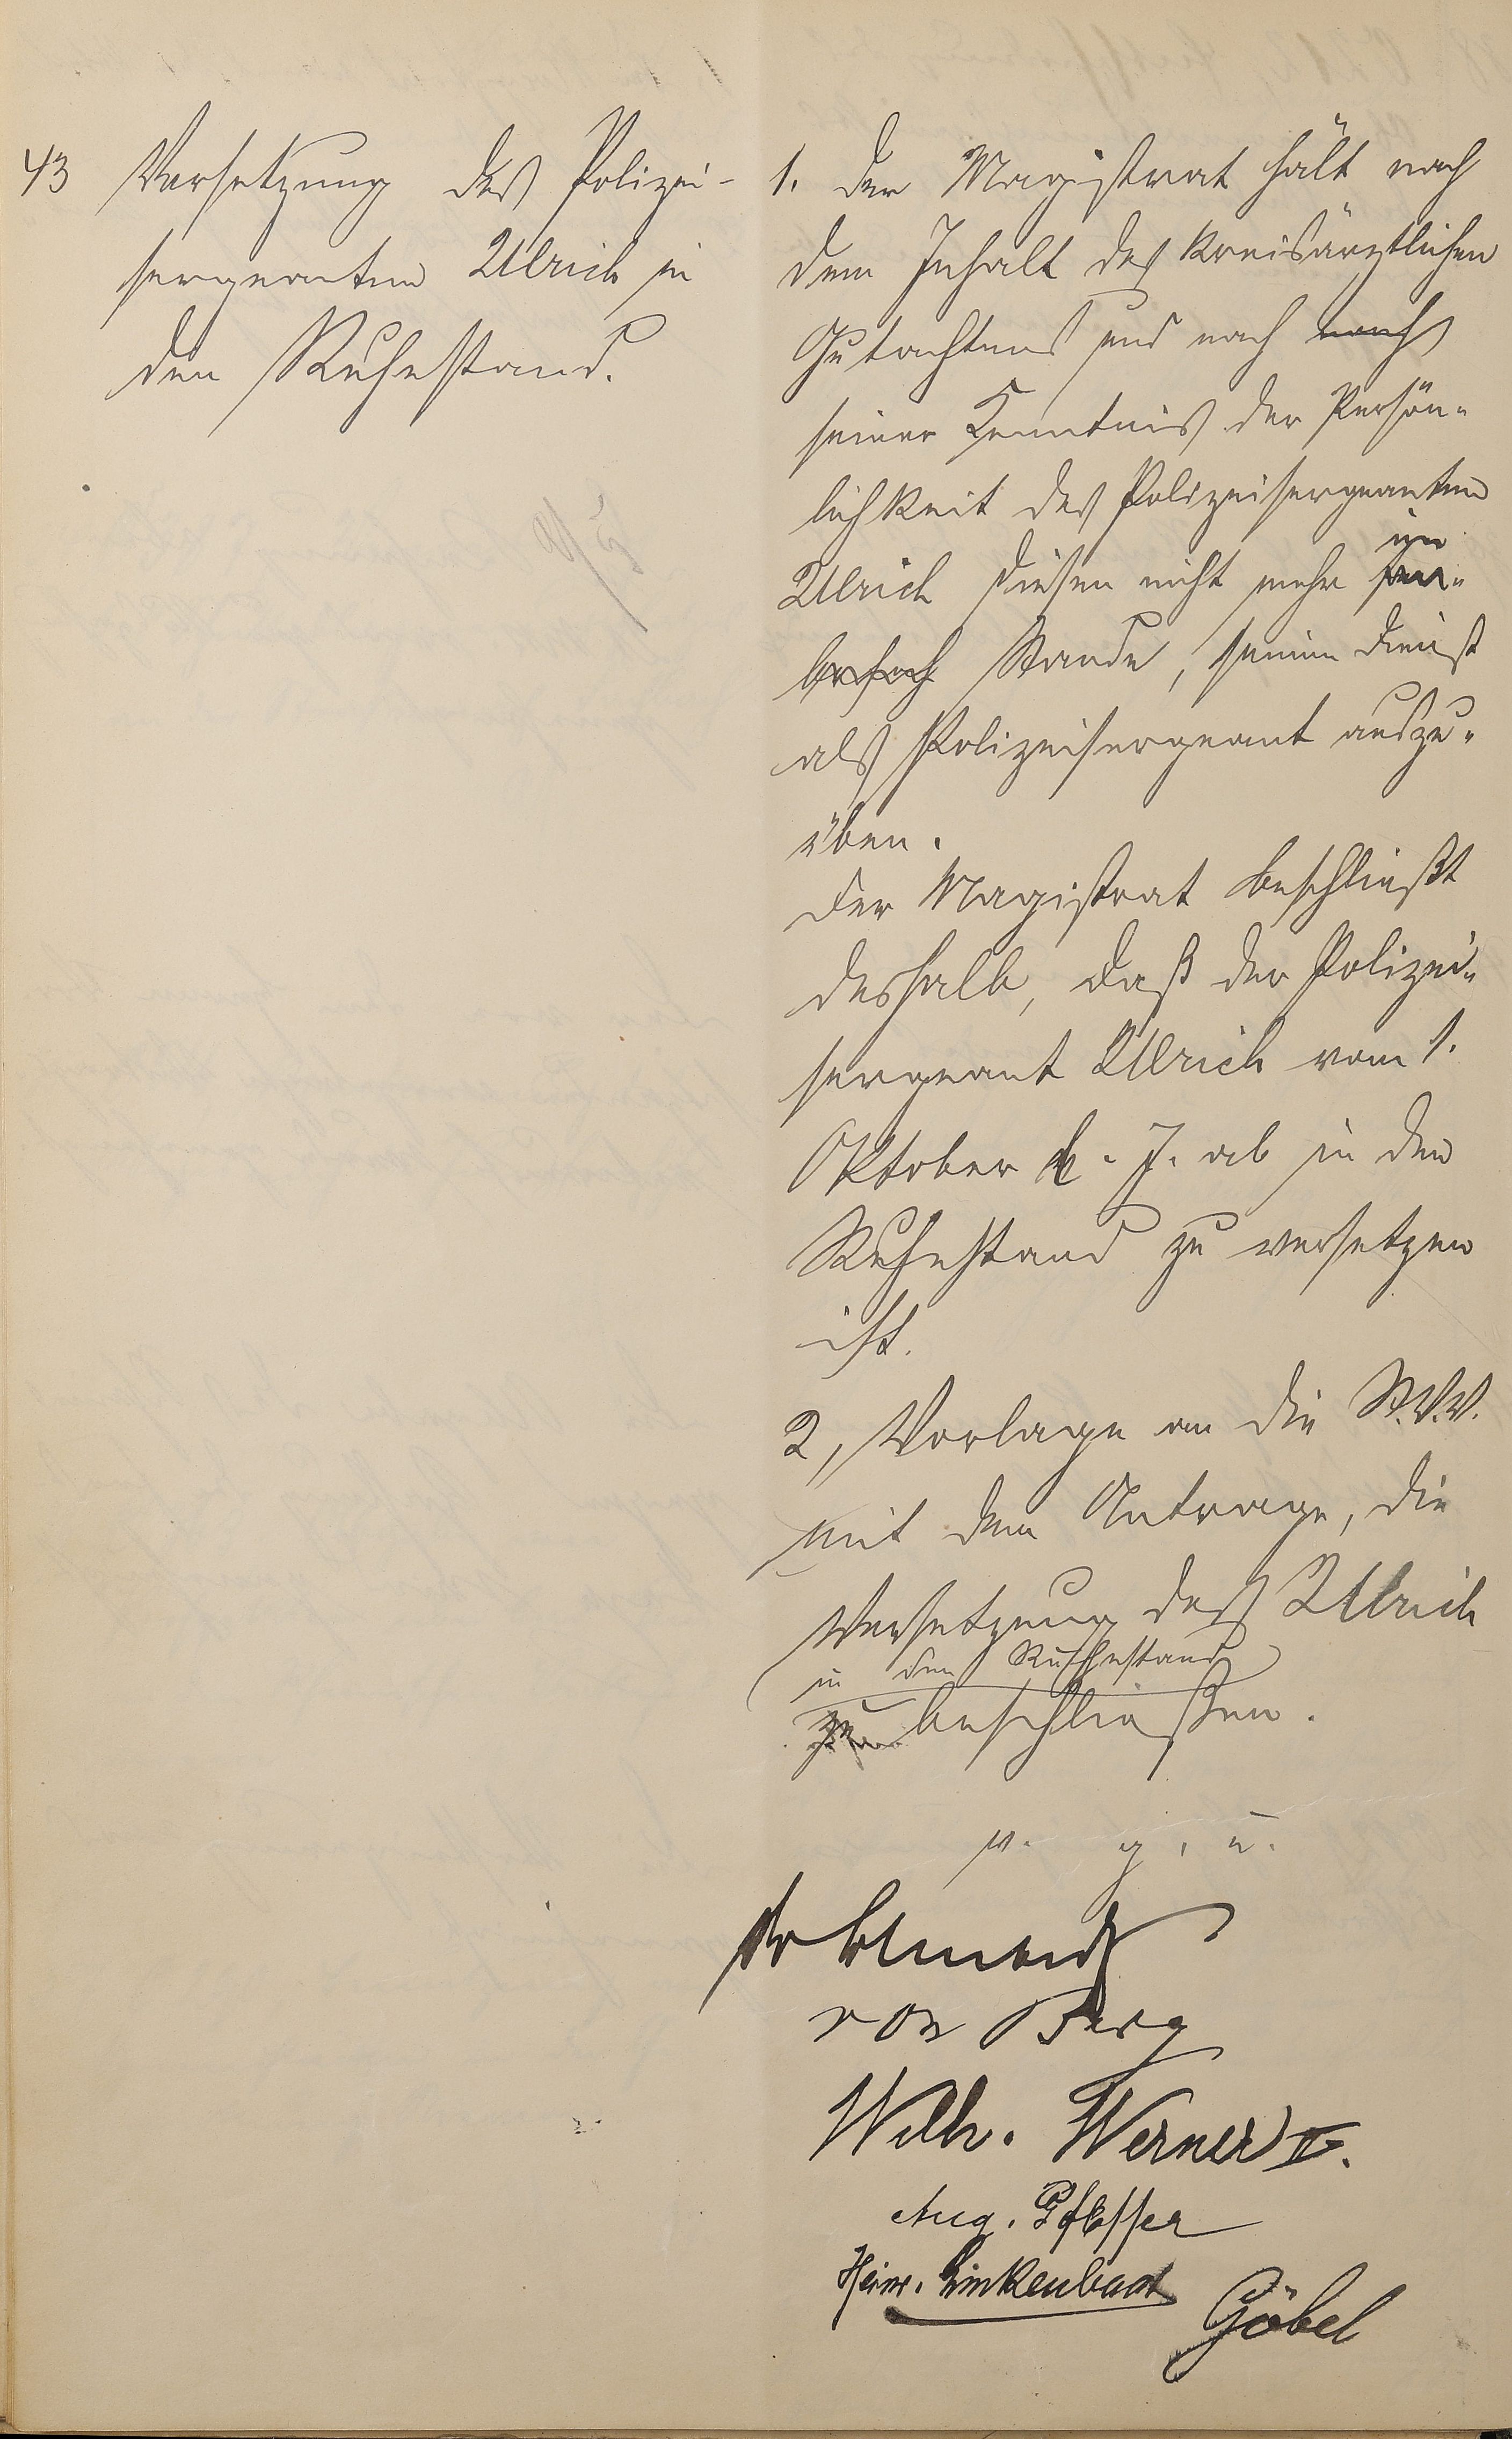 43 Versetzung des Polizei-
sergeanten Ulrich in
den Ruhestand.
1. Der Magistrat hält nach
dem Inhalt des kreisärztlichen
Gutachtens und nach nach
seiner Kenntnis der Persön-
lichkeit des Polizeisergeanten
im
Ulrich diesen nicht mehr
Stande, seinen Dienst
als Polizeisergeant auszu-
üben.
Der Magistrat beschließt
deshalb, daß der Polizei-
sergeant Ulrich vom 1.
Oktober d. J. ab in den
Ruhestand zu versetzen
ist.
2, Vorlage an die St.V.V.
mit dem Antrage, die
Versetzung des Ulrich
in den Ruhestand
zu beschließen.
v. g. u.
von Berg
Wilh. Werner II.
Aug.
Heinr. Linkenbach
Göbel